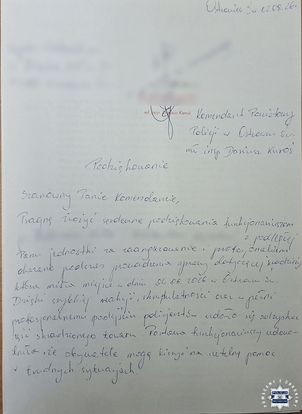 Ostrowiec Św. 02.08.26
Komendant Powiatowy
Policji w Ostrowcu Św.
mł. insp. Dariusz Kuroś
Podziękowanie
Szanowny Panie Komendancie,
Pragnę złożyć serdeczne podziękowania funkcjonariuszom
z podległej
Panu jednostki za zaangażowanie i profesjonalizm
okazane podczas prowadzenia sprawy dotyczącej kradzieży
która miała miejsce w dniu w Ostrowcu Św.
Dzięki szybkiej reakcji, skrupulatności oraz w pełni
profesjonalnemu podejściu policjantów udało się odzyskać
skradzionego towaru. Postawa funkcjonariuszy udowa-
dnia że obywatele mogą liczyć na realną pomoc
w trudnych sytuacjach